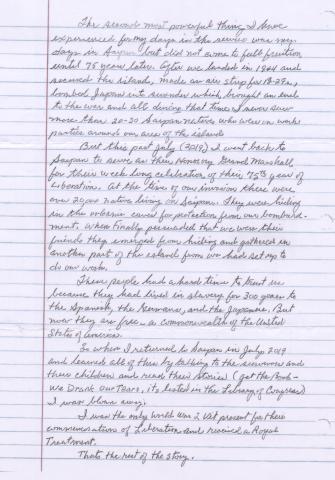 The second most powerful thing I have
experienced for my days in the service was my
days in Saipan but did not come to full fruition
until 75 years later. After we landed in 1944 and
secured the island, made an air strip for B-29s,
bombed Japan into surrender which brought an end
to the war and all during that time I never saw
more than 20-30 Saipan natives who were on work
parties around our area of the island.
But this past July (2019) I went back to
Saipan to serve as their Honorary Grand Marshall
for their week long celebration of their 75th year of
Liberation. At the time of our invasion there were
over natives living on Saipan. They were hiding
in the caves for protection from our bombard-
ment. When finally persuaded that we were their
friends they emerged from hiding and gathered in
another part of the island from our had set up to
do our work.
These people had a hard time to trust us
because they had lived in slavery for 300 years to
the Spanish, the Germans, and the Japanese. But
now they are free - a commonwealth of the United
States of America.
So when I returned to Saipan in July 2019
and learned all of this by talking to the survivors and
their children and read their stories (get the book -
We Drank Our Tears, it's listed in the Library of Congress)
I was blown away.
I was the only World War 2 Vet present for their
commemoration of Liberation and received a Royal
Treatment.
That's the rest of the story.